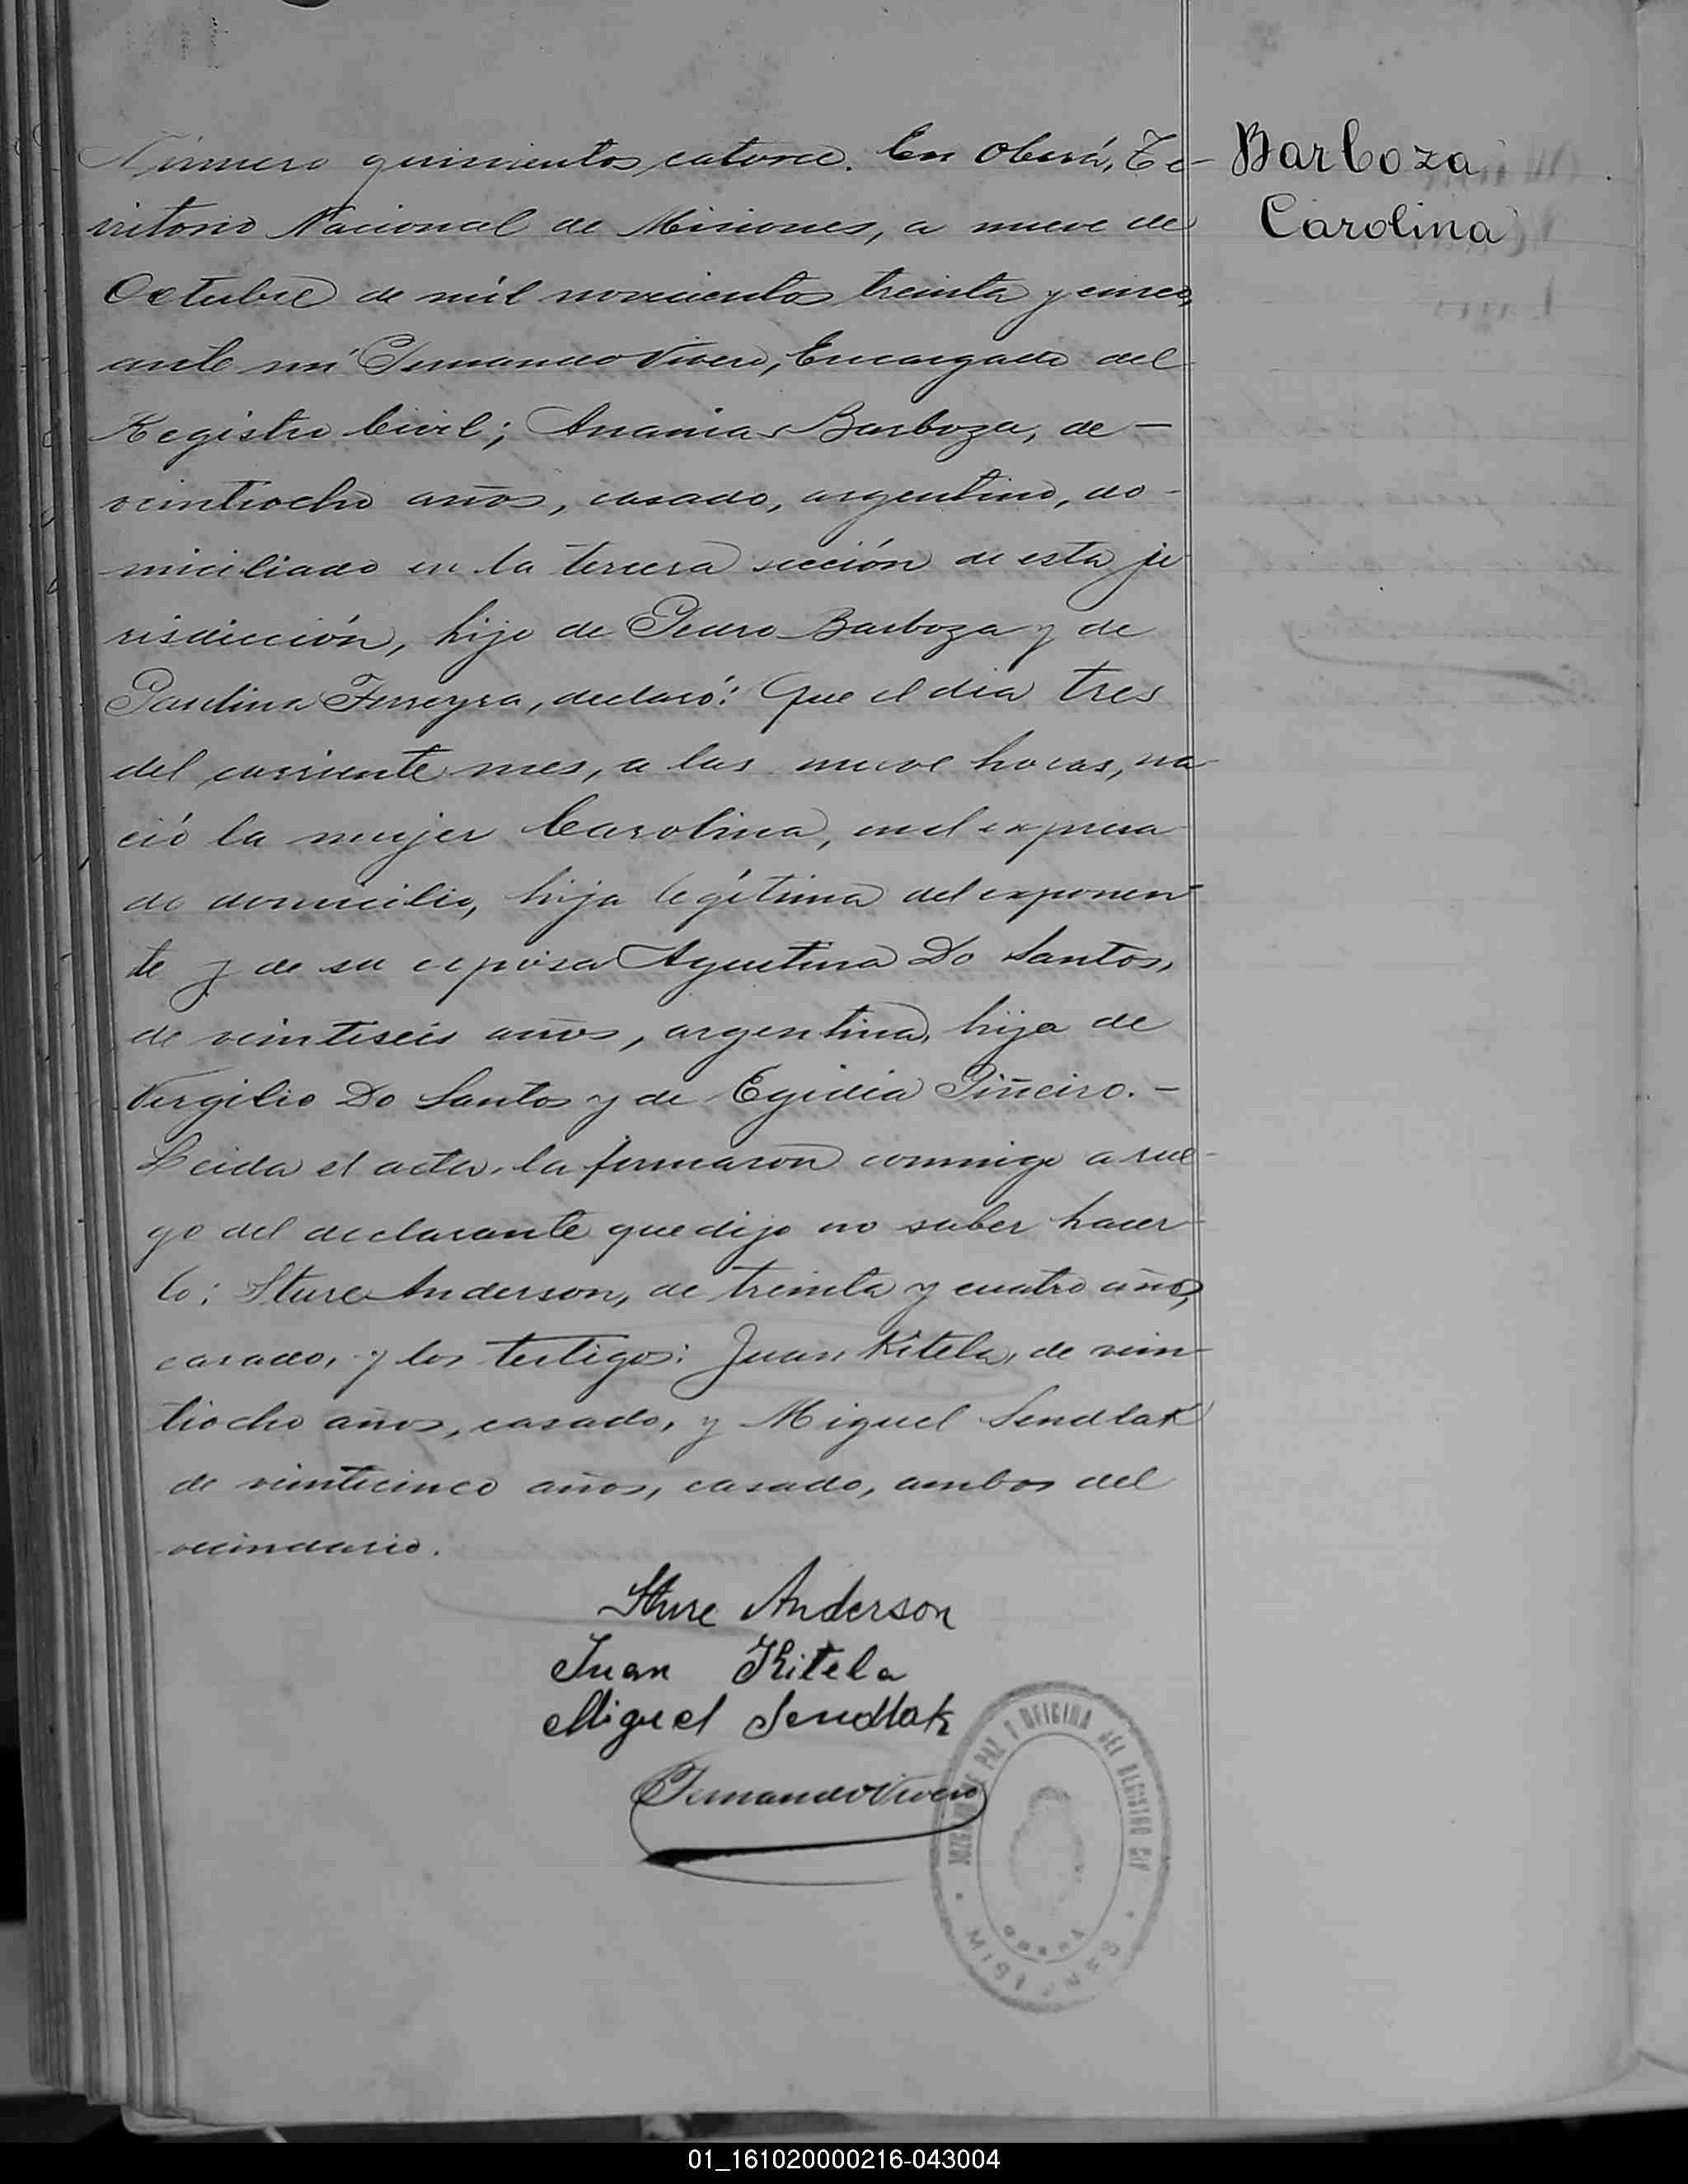 Número quinientos catorce. En Oberá, Te-
rritorio Nacional de Misiones, a nueve de
Octubre de mil novecientos treinta y cinco,
ante mí Fernando Vivero, Encargado del
Registro Civil; Ananias Barboza, de —
veintiocho años, casado, argentino, do-
miciliado en la tercera sección de esta ju
risdicción, hijo de Pedro Barboza y de
Paulina Ferreyra, declaró: Que el día tres
del corriente mes, a las nueve horas, na
ció la mujer Carolina, en el expresa
do domicilio, hija legítima del exponen
te y de su esposa Agustina Do Santos,
de veintiseis años, argentina, hija de
Virgilio Do Santos y de Egidia Piñeiro. —
Leida el acta, la firmaron conmigo a rue-
go del declarante que dijo no saber hacer-
lo: Sture Anderson, de treinta y cuatro años,
casado, y los testigos: Juan Kitela, de vein-
tiocho años, casado, y Miguel Sendlak
de veinticinco años, casado, ambos del
vecindario.
Barboza
Carolina
Sture Anderson
Juan Kitela
Miguel Sendlak
Fernando Vivero
JUZGADO DE PAZ Y OFICINA DEL REGISTRO CIV
OBERÁ
MISIONES
01_161020000216-043004